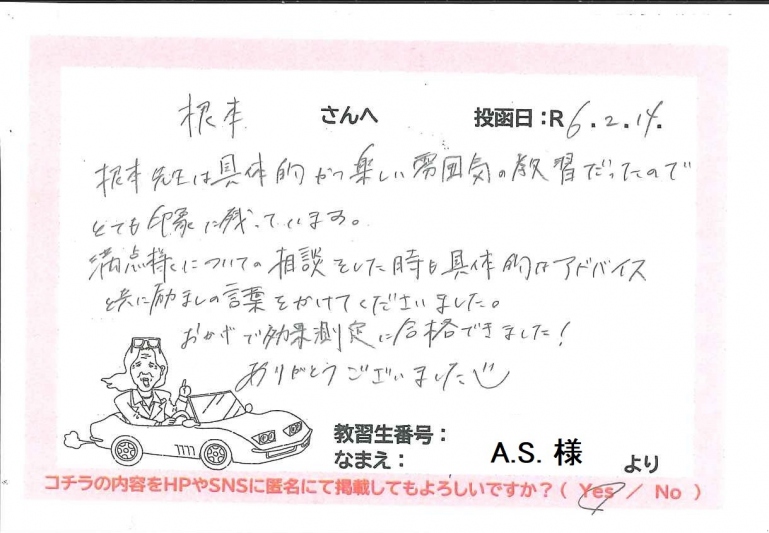 根本 さんへ 投函日：R6.2.14.
根本先生は具体的かつ楽しい雰囲気の教習だったので
とても印象に残っています。
満点様についての相談をした時も具体的なアドバイス
と共に励ましの言葉をかけてくださいました。
おかげで効果測定に合格できました！
ありがとうございました
教習生番号：
なまえ： A.S. 様 より
コチラの内容をHPやSNSに匿名にて掲載してもよろしいですか？（ Yes ／ No ）